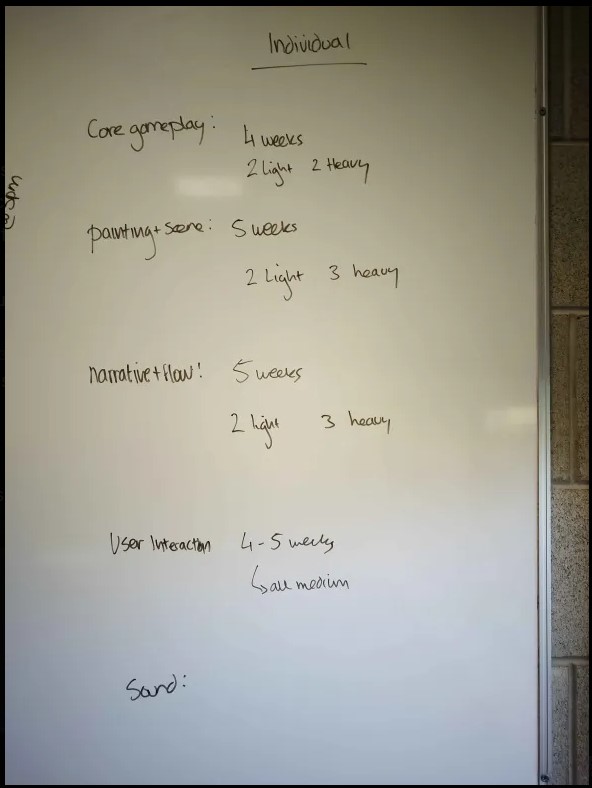 Individual
Core gameplay: 4 weeks
2 Light 2 Heavy
painting + scene: 5 weeks
2 Light 3 heavy
narrative + flow: 5 weeks
2 light 3 heavy
User Interaction 4-5 weeks
↳ all medium